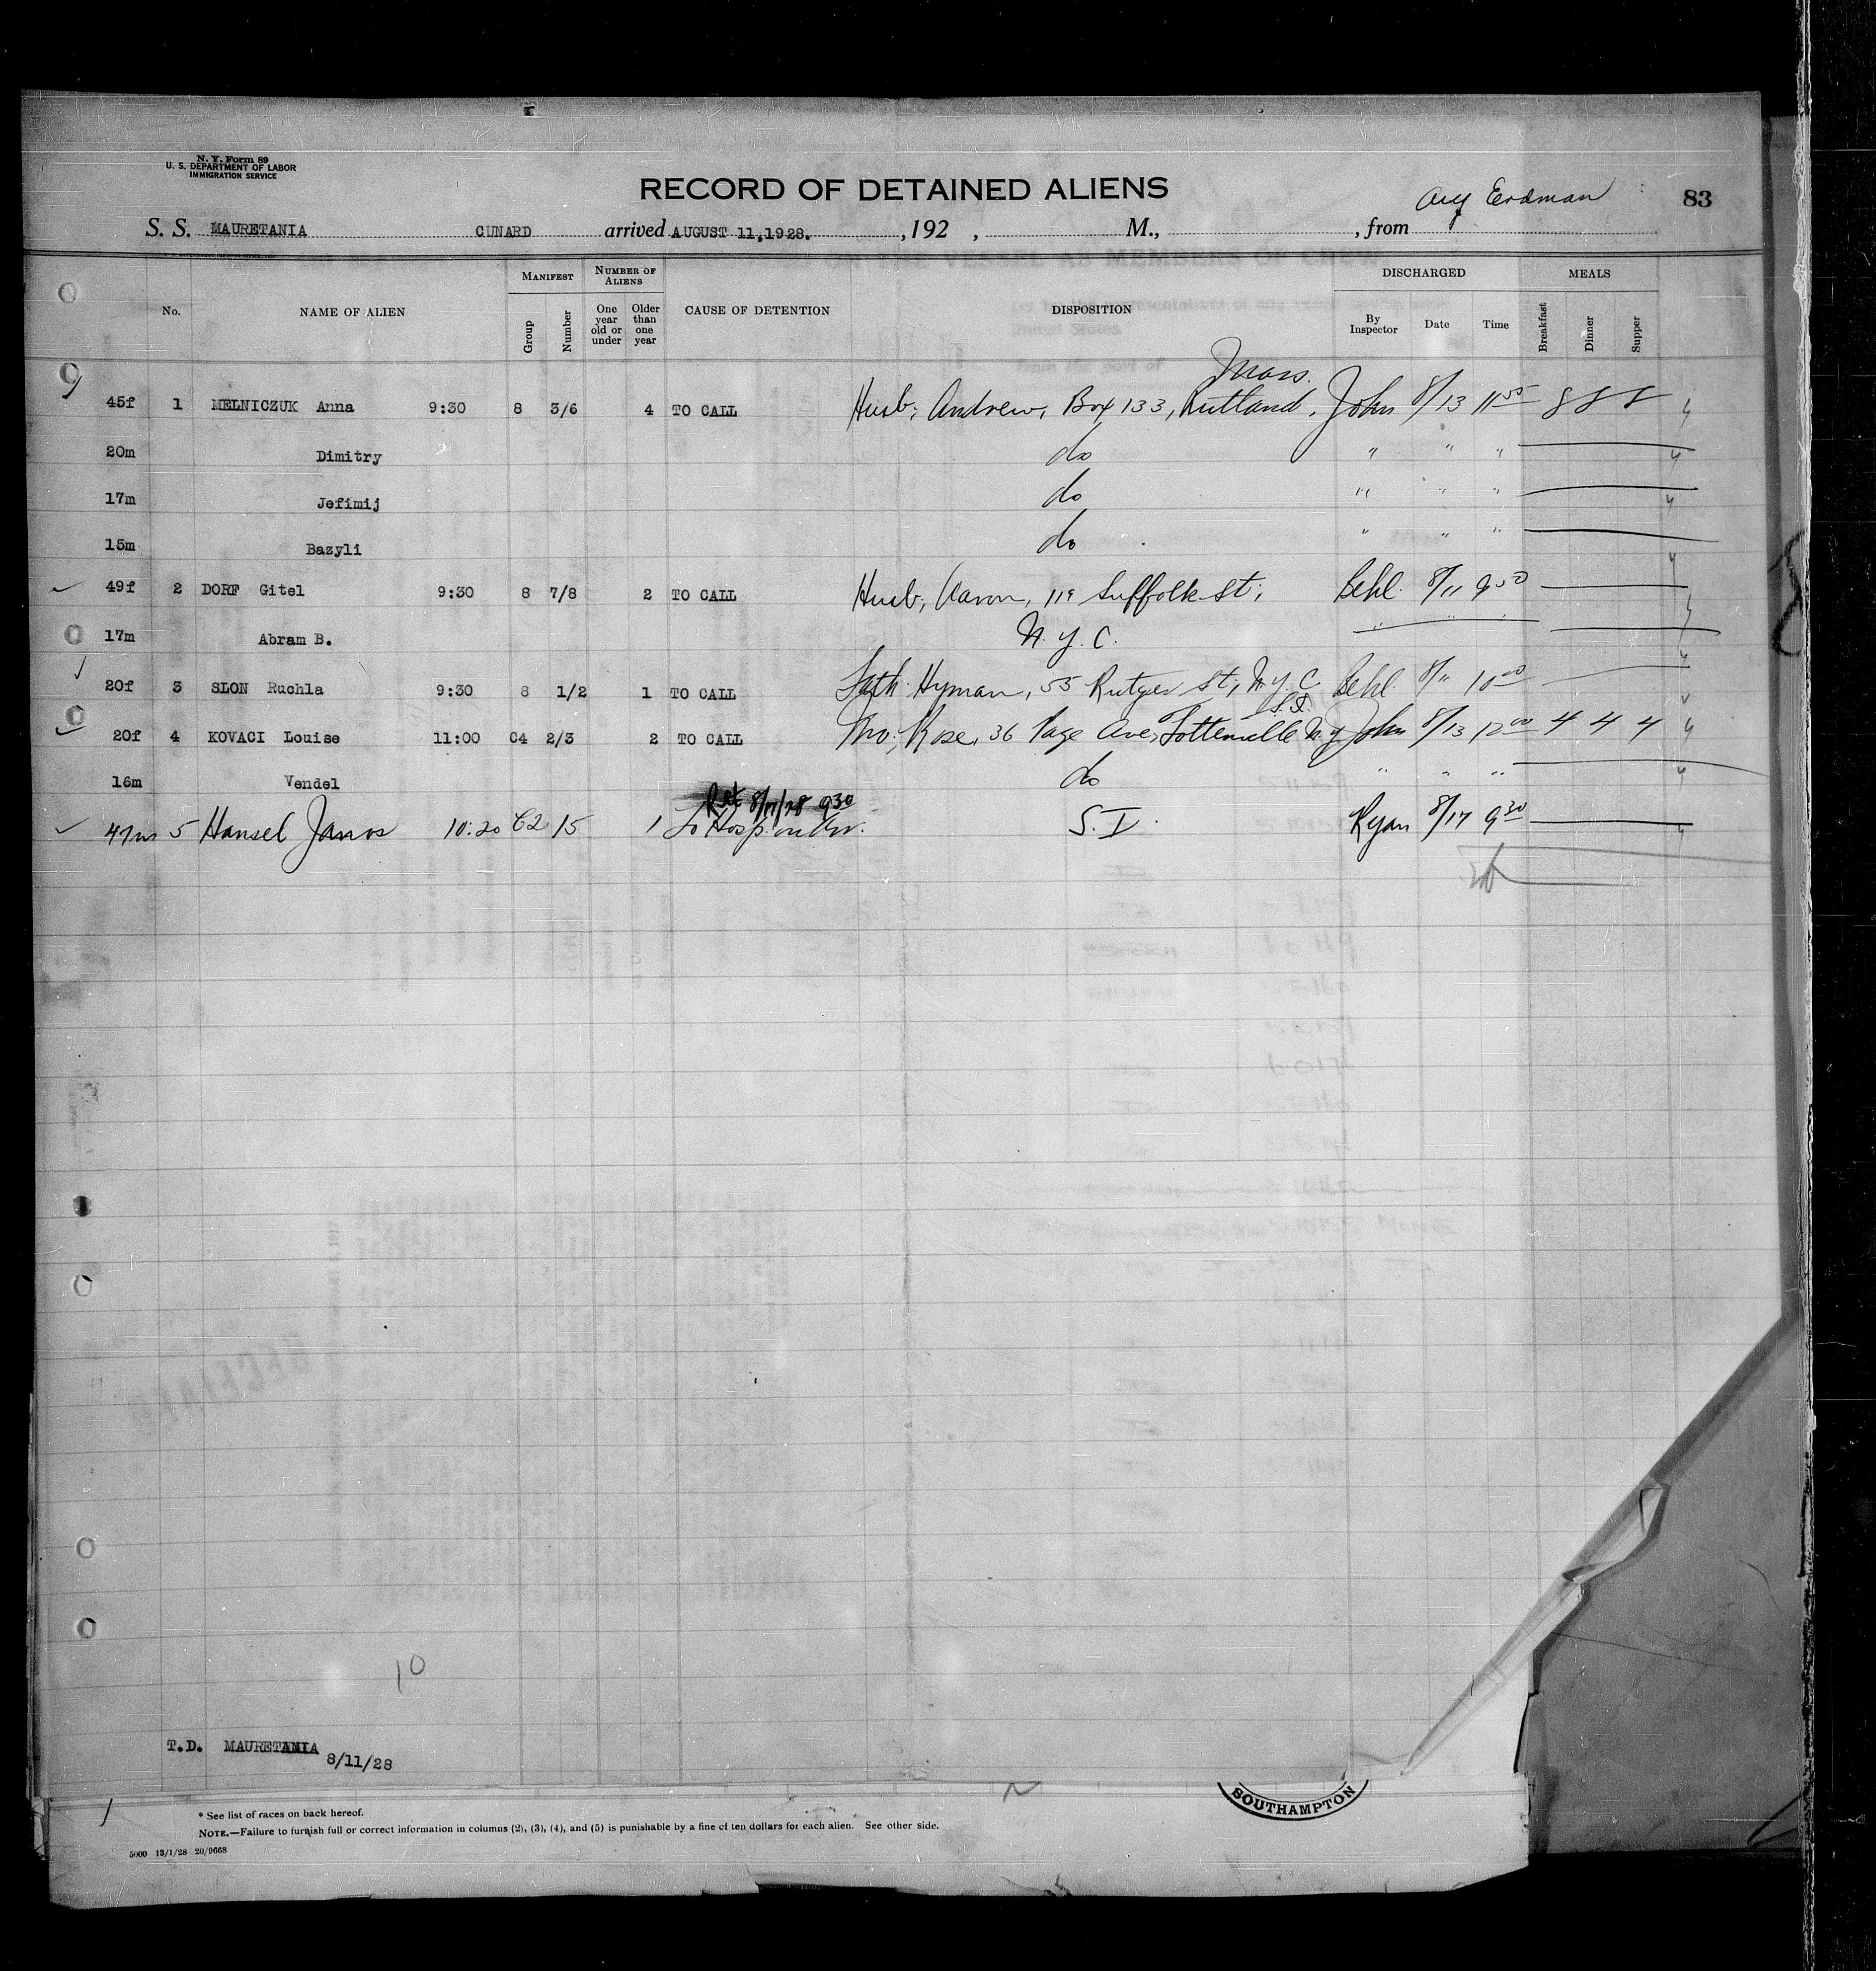 N. Y. Form 89
U. S. DEPARTMENT OF LABOR
IMMIGRATION SERVICE
RECORD OF DETAINED ALIENS
Erdman
83
S. S. MAURETANIA CUNARD arrived AUGUST 11,1928. , 192 , M., , from
No. NAME OF ALIEN MANIFEST Group Number NUMBER OF ALIENS One year old or under Older than one year CAUSE OF DETENTION DISPOSITION DISCHARGED By Inspector Date Time MEALS Breakfast Dinner Supper
Mass.
45f 1 MELNICZUK Anna 9:30 8 3/6 4 TO CALL Husb, Andrew, Box 133, Rutland, John 8/13 11 55 8 8 8
20m Dimitry do " " "
17m Jefimij do " " "
15m Bazyli do " " "
49f 2 DORF Gitel 9:30 8 7/8 2 TO CALL Husb, Aaron, 119 Suffolk St, Behl. 8/11 9 50
17m Abram B. N.Y.C. " " "
20f 3 SLON Ruchla 9:30 8 1/2 1 TO CALL Fath. Hyman, 55 Rutger St, N.Y.C Behl. 8/11 10 00
S.I.
20f 4 KOVACI Louise 11:00 C4 2/3 2 TO CALL Mo, Rose, 36 Page Ave, Tottenville N.Y John 8/13 12 00 4 4 4
16m Vendel do " " "
8/17/28 9 30
47m 5 Hansel Janos 10:20 C2 15 1 To Hosp. on S.I. Ryan 8/17 9 30
10
T.D. MAURETANIA 8/11/28
SOUTHAMPTON
* See list of races on back hereof.
NOTE.—Failure to furnish full or correct information in columns (2), (3), (4), and (5) is punishable by a fine of ten dollars for each alien. See other side.
5000 13/1/28 20/9668